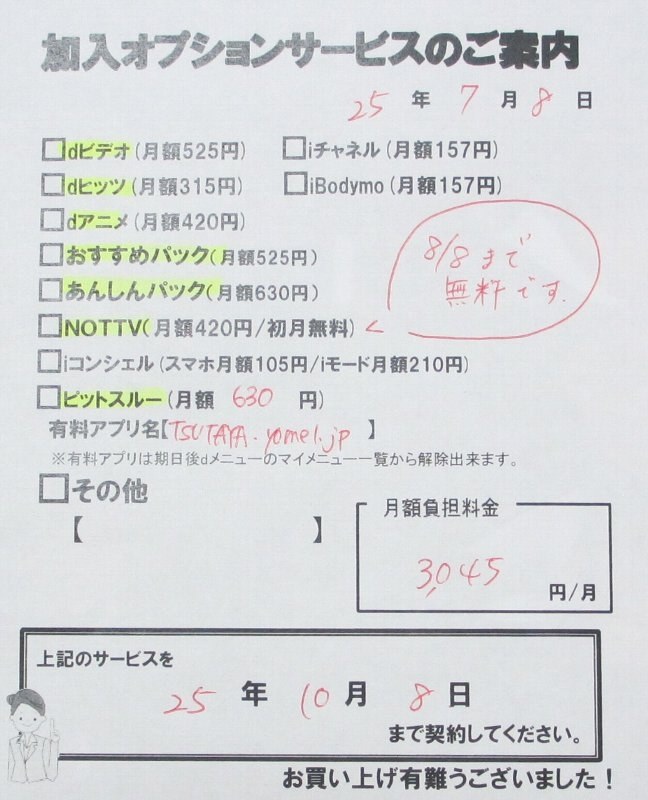 加入オプションサービスのご案内
25年7月8日
□dビデオ(月額525円) □iチャネル(月額157円)
□dヒッツ(月額315円) □iBodymo(月額157円)
□dアニメ(月額420円)
□おすすめパック(月額525円)
8/8まで
無料です.
□あんしんパック(月額630円)
□NOTTV(月額420円/初月無料)
□iコンシェル(スマホ月額105円/iモード月額210円)
□ピットスルー(月額 630 円)
有料アプリ名【TSUTAYA.yome1.jp】
※有料アプリは期日後dメニューのマイメニュー一覧から解除出来ます。
□その他
【 】
月額負担料金
3,045
円/月
上記のサービスを
25年10月8日
まで契約してください。
お買い上げ有難うございました!